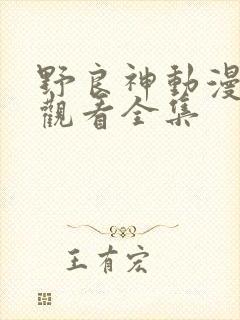 野良神動漫
觀看全集
王有宏